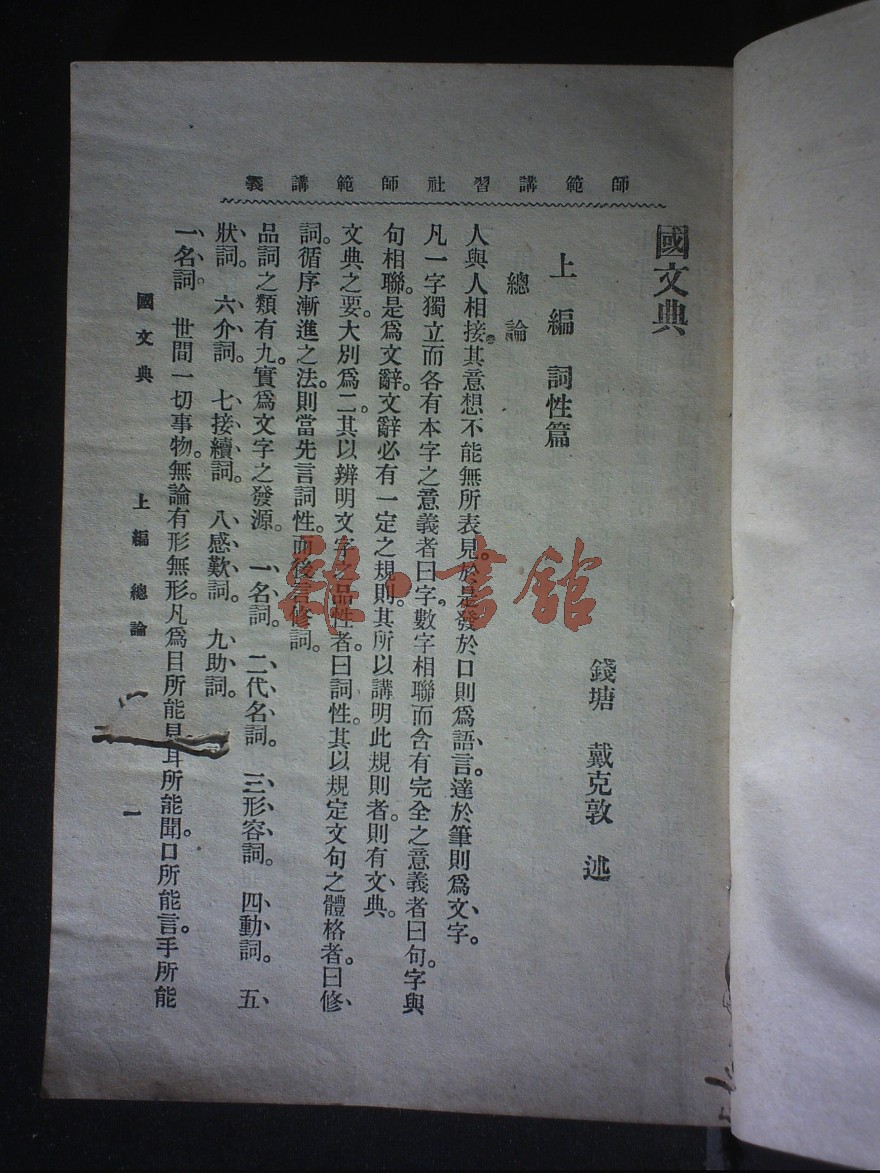 師範講習社師範講義
國文典
錢塘　戴克敦　述
上編　詞性篇
總論
人與人相接。其意想不能無所表見。於是發於口則爲語言。達於筆則爲文字。
凡一字獨立而各有本字之意義者曰字。數字相聯而含有完全之意義者曰句。字與
句相聯。是爲文辭。文辭必有一定之規則。其所以講明此規則者。則有文典。
文典之要。大別爲二。其以辨明文字之品性者。曰詞性。其以規定文句之體格者。曰修
詞。循序漸進之法。則當先言詞性。而後言修詞。
品詞之類有九。實爲文字之發源。一名詞。二代名詞。三形容詞。四動詞。五
狀詞。六介詞。七接續詞。八感歎詞。九助詞。
一名詞　世間一切事物。無論有形無形。凡爲目所能見。耳所能聞。口所能言。手所能
國文典　上編　總論　一
雜·書館